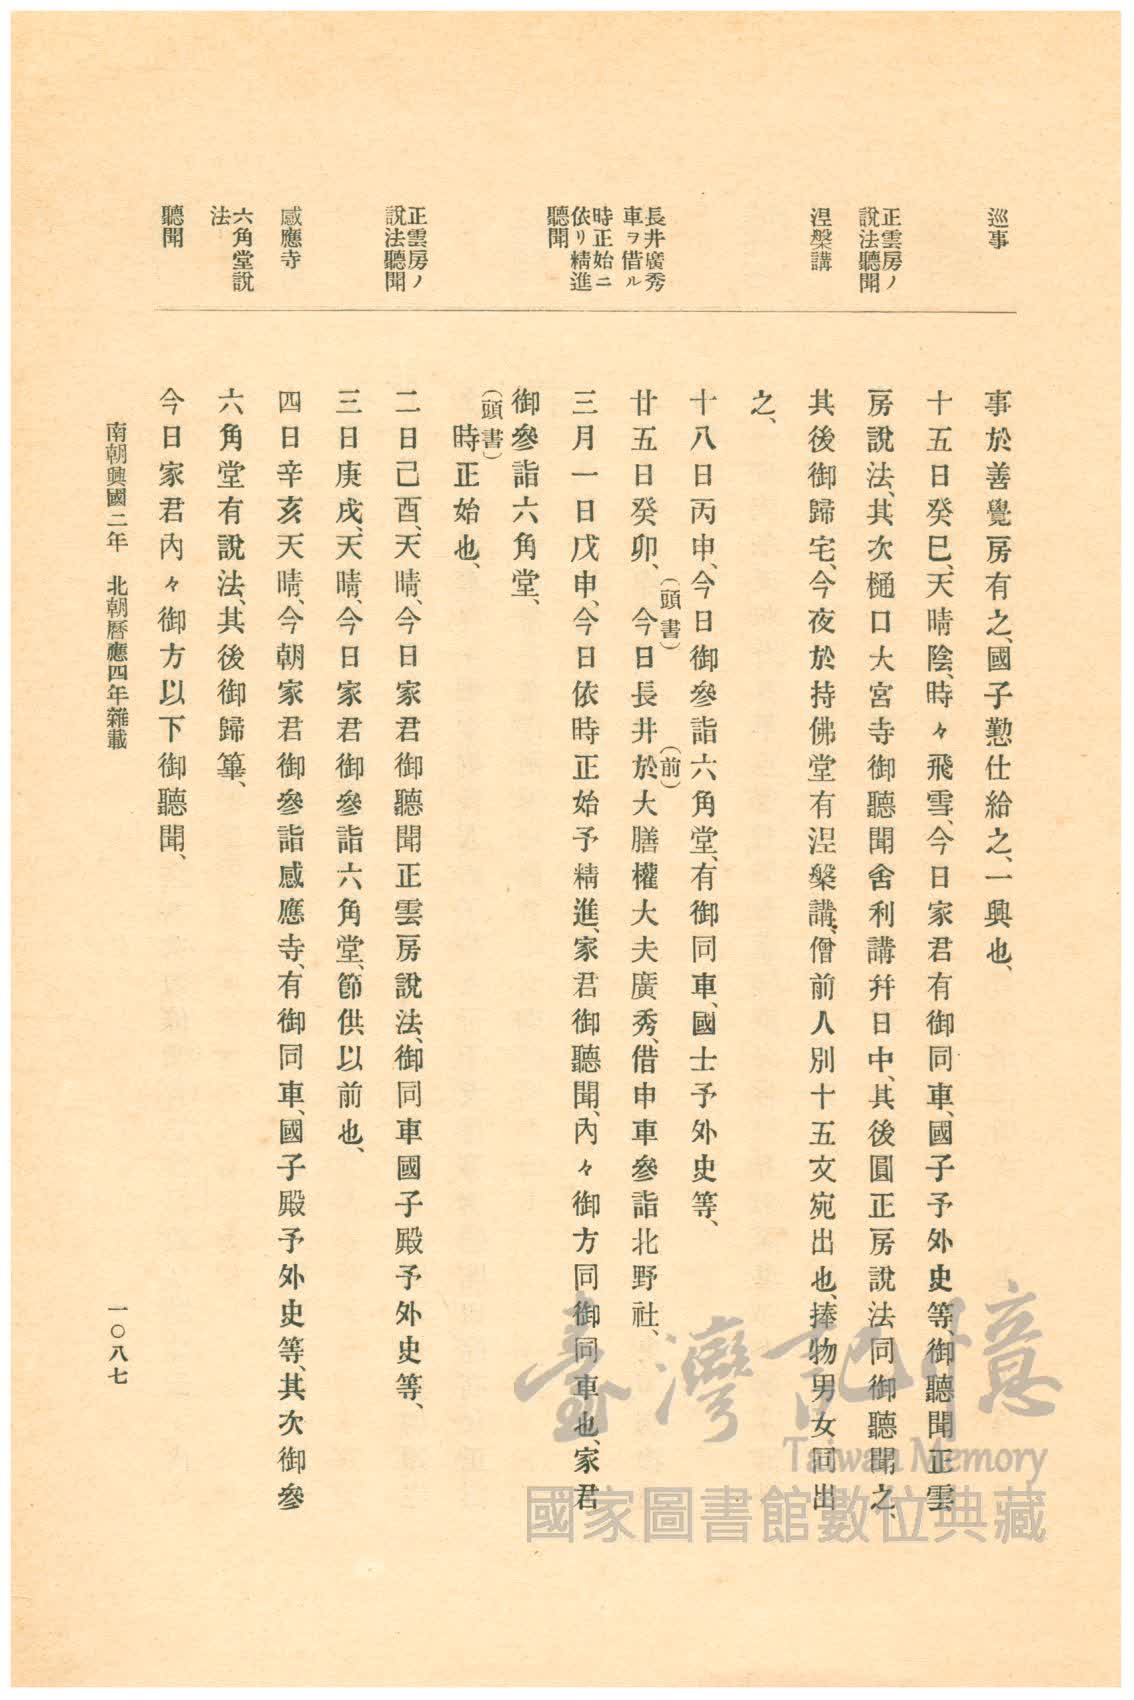 巡事
正雲房ノ
說法聽聞
涅槃講
長井廣秀
車ヲ借ル
時正始ニ
依リ精進
聽聞
正雲房ノ
說法聽聞
感應寺
六角堂說
法
聽聞
事於善覺房有之、國子懃仕給之、一興也、
十五日癸巳、天晴陰、時々飛雪、今日家君有御同車、國子予外史等、御聽聞正雲
房說法、其次樋口大宮寺御聽聞舍利講幷日中、其後圓正房說法同御聽聞之、
其後御歸宅、今夜於持佛堂有涅槃講、僧前人別十五文宛出也、捧物男女同出
之、
十八日丙申、今日御參詣六角堂、有御同車、國士予外史等、
(頭書)
(前)
廿五日癸卯、今日長井於大膳權大夫廣秀、借申車參詣北野社、
三月一日戊申、今日依時正始予精進、家君御聽聞、內々御方同御同車也、家君
御參詣六角堂、
(頭書)
時正始也、
二日己酉、天晴、今日家君御聽聞正雲房說法、御同車國子殿予外史等、
三日庚戌、天晴、今日家君御參詣六角堂、節供以前也、
四日辛亥天晴、今朝家君御參詣感應寺、有御同車、國子殿予外史等、其次御參
六角堂有說法、其後御歸篳、
今日家君內々御方以下御聽聞、
南朝興國二年 北朝曆應四年雜載
一〇八七
臺灣記憶
Taiwan Memory
國家圖書館數位典藏